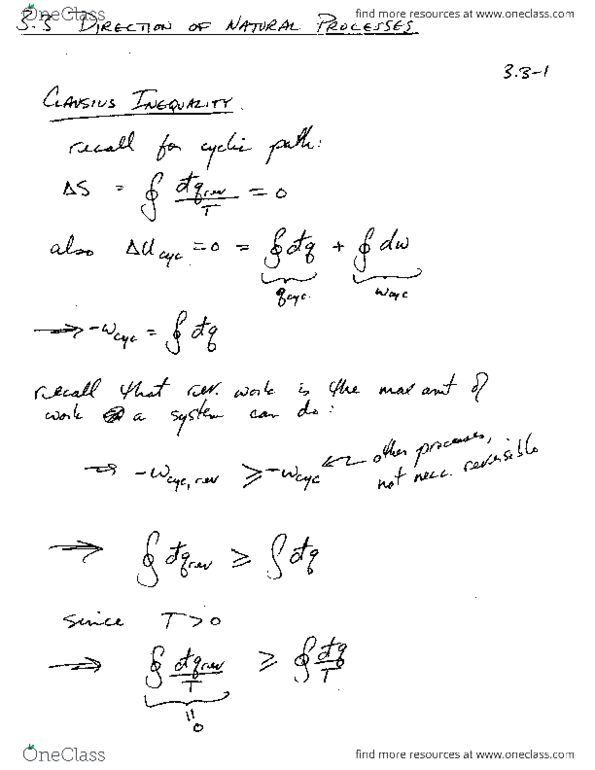 OneClass find more resources at www.oneclass.com
3.3 DIRECTION OF NATURAL PROCESSES
3.3-1
CLAUSIUS INEQUALITY.
recall for cyclic path:
ΔS = ∮ đq_rev/T = 0
also ΔU_cyc = 0 = ∮ đq + ∮ dw
q_cyc. w_cyc
→ -w_cyc = ∮ đq
recall that rev. work is the max amt of
work a system can do:
⇒ -w_cyc, rev ≥ -w_cyc ← other processes,
not necc. reversible
⇒ ∮ đq_rev ≥ ∫ đq
since T > 0
⇒ ∮ đq_rev/T ≥ ∮ đq/T
=
0
OneClass find more resources at www.oneclass.com